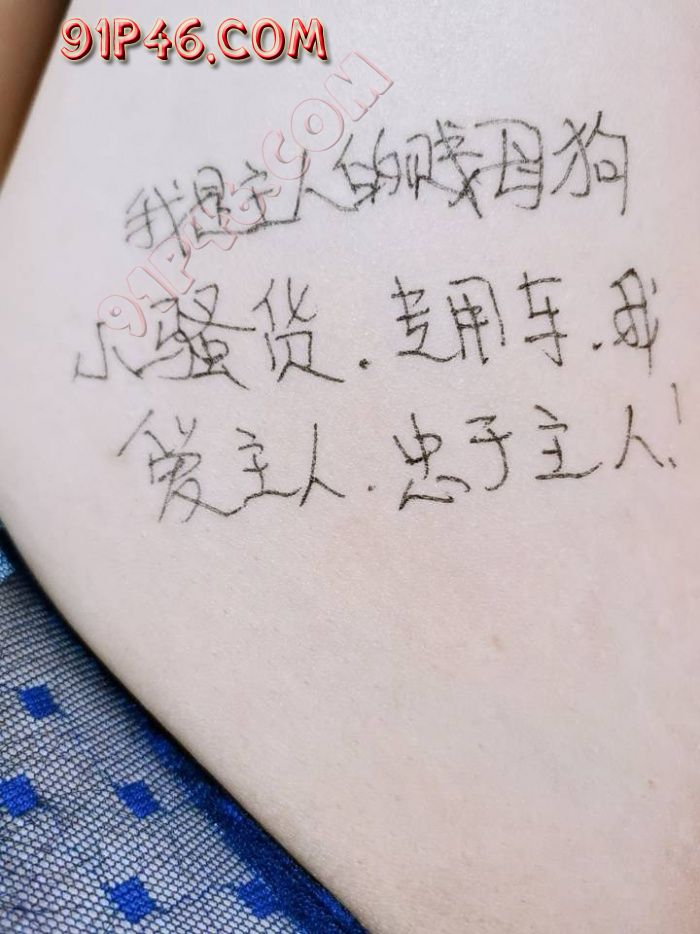 91P46.COM
91P46.COM
我是主人的贱母狗
小骚货.专用车.我
爱主人.忠于主人!